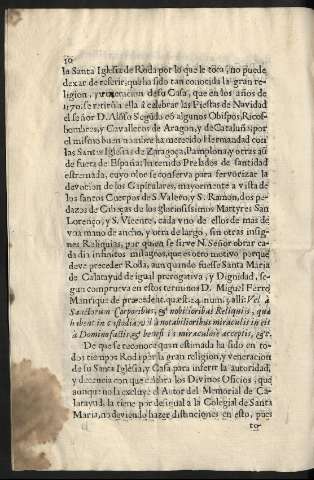 30
la Santa Iglesia de Roda por lo que le toca, no puede
dexar de referir, que ha sido tan conocida la gran re-
ligion, y veneracion de su Casa, que en los años de
1170. se retirò a ella à celebrar las Fiestas de Navidad
el señor D. Alõso Segũdo cõ algunos Obispos, Ricos-
hombres, y Cavalleros de Aragon, y de Cataluña: por
el mismo buen nombre ha merecido Hermandad con
las Santas Iglesias de Zaragoça, Pamplona, y otras aũ
de fuera de España: ha tenido Prelados de santidad
estremada, cuyo olor se conserva para fervorizar la
devocion de los Capitulares, mayormente a vista de
los santos Cuerpos de S. Valero, y S. Ramon, dos pe-
dazos de Cabeças de los gloriosissimos Martyres San
Lorenço, y S. Vicente, cada vno de ellos de mas de
vna mano de ancho, y otra de largo, sin otras insig-
nes Reliquias, por quien se sirve N. Señor obrar ca-
da dia infinitos milagros, que es otro motivo porque
deve preceder Roda, aun quando fuesse Santa Maria
de Calatayud de igual prerogativa, y Dignidad, se-
gun comprueva en estos terminos D. Miguel Ferrer
Manrique de præcedent. quæst. 24. num. 7. alli: Vel à
Sanctorum Corporibus, & nobilioribus Reliquiis, quæ
habent in custodia, vel à notabilioribus miraculis in eis
à Domino factis, & benefi is miraculosè acceptis, &c.
De que se reconoce quan estimada ha sido en to-
dos tiempos Roda por la gran religion, y veneracion
de su Santa Iglesia, y Casa para inferir la autoridad,
y decencia con que celebra los Divinos Oficios, que
aunque no la excluye el Autor del Memorial de Ca-
latayud, la tiene por desigual a la Colegial de Santa
Maria, no deviendo hazer distinciones en esto, pues